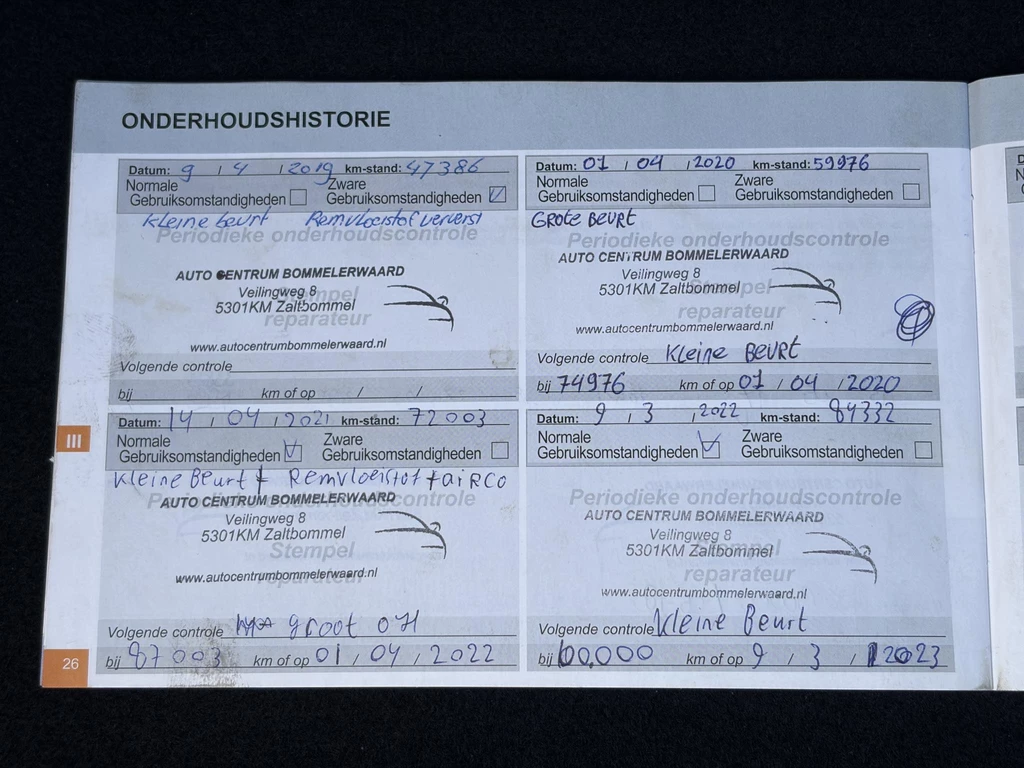 ONDERHOUDSHISTORIE
Datum: 9 / 4 / 2019 km-stand: 47386
Normale Zware
Gebruiksomstandigheden Gebruiksomstandigheden
Kleine beurt Remvloeistof ververst
Periodieke onderhoudscontrole
AUTO CENTRUM BOMMELERWAARD
Veilingweg 8
Stempel
5301KM Zaltbommel
reparateur
www.autocentrumbommelerwaard.nl
Volgende controle
bij km of op / /
Datum: 01 / 04 / 2020 km-stand: 59976
Normale Zware
Gebruiksomstandigheden Gebruiksomstandigheden
GROTE BEURT
Periodieke onderhoudscontrole
AUTO CENTRUM BOMMELERWAARD
Veilingweg 8
5301KM Zaltbommel
Stempel
reparateur
www.autocentrumbommelerwaard.nl
Volgende controle Kleine BEURT
bij 74976 km of op 01 / 04 / 2020
Datum: 14 / 04 / 2021 km-stand: 72003
Normale Zware
Gebruiksomstandigheden Gebruiksomstandigheden
Kleine Beurt + Remvloeistof + aiRCO
Periodieke onderhoudscontrole
AUTO CENTRUM BOMMELERWAARD
Veilingweg 8
5301KM Zaltbommel
Stempel
www.autocentrumbommelerwaard.nl
reparateur
Volgende controle groot OH
bij 87003 km of op 01 / 04 / 2022
Datum: 9 / 3 / 2022 km-stand: 84332
Normale Zware
Gebruiksomstandigheden Gebruiksomstandigheden
Periodieke onderhoudscontrole
AUTO CENTRUM BOMMELERWAARD
Veilingweg 8
5301KM Zaltbommel
Stempel
reparateur
www.autocentrumbommelerwaard.nl
Volgende controle Kleine Beurt
bij 100.000 km of op 9 / 3 / 2023
III
26